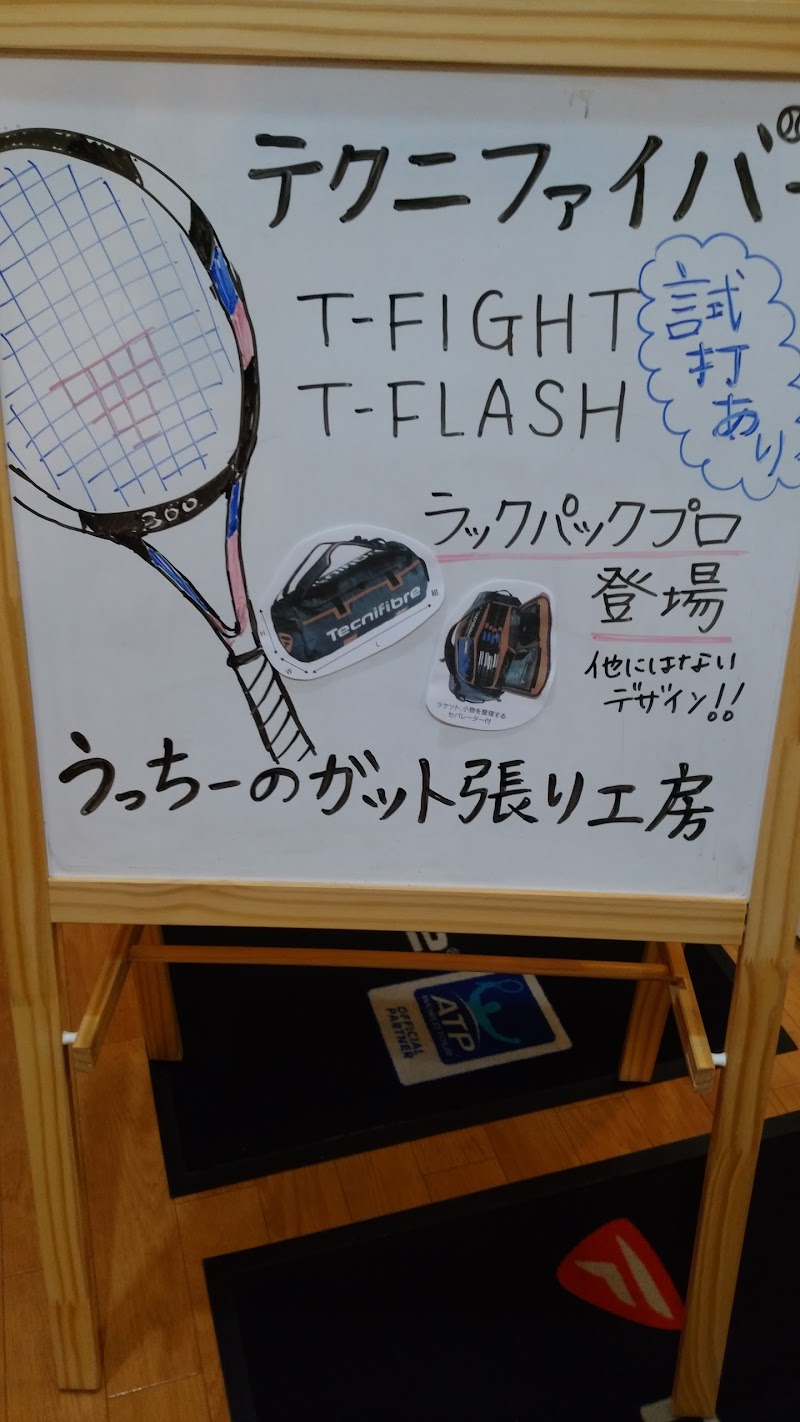 テクニファイバー
T-FIGHT
T-FLASH
試
打
あり
300
ラックパックプロ
登場
Tecnifibre
H
W
L
他にはない
デザイン!!
ラケット、小物を整理する
セパレーター付
うっちーのガット張り工房
ATP
WORLD TOUR
OFFICIAL
PARTNER